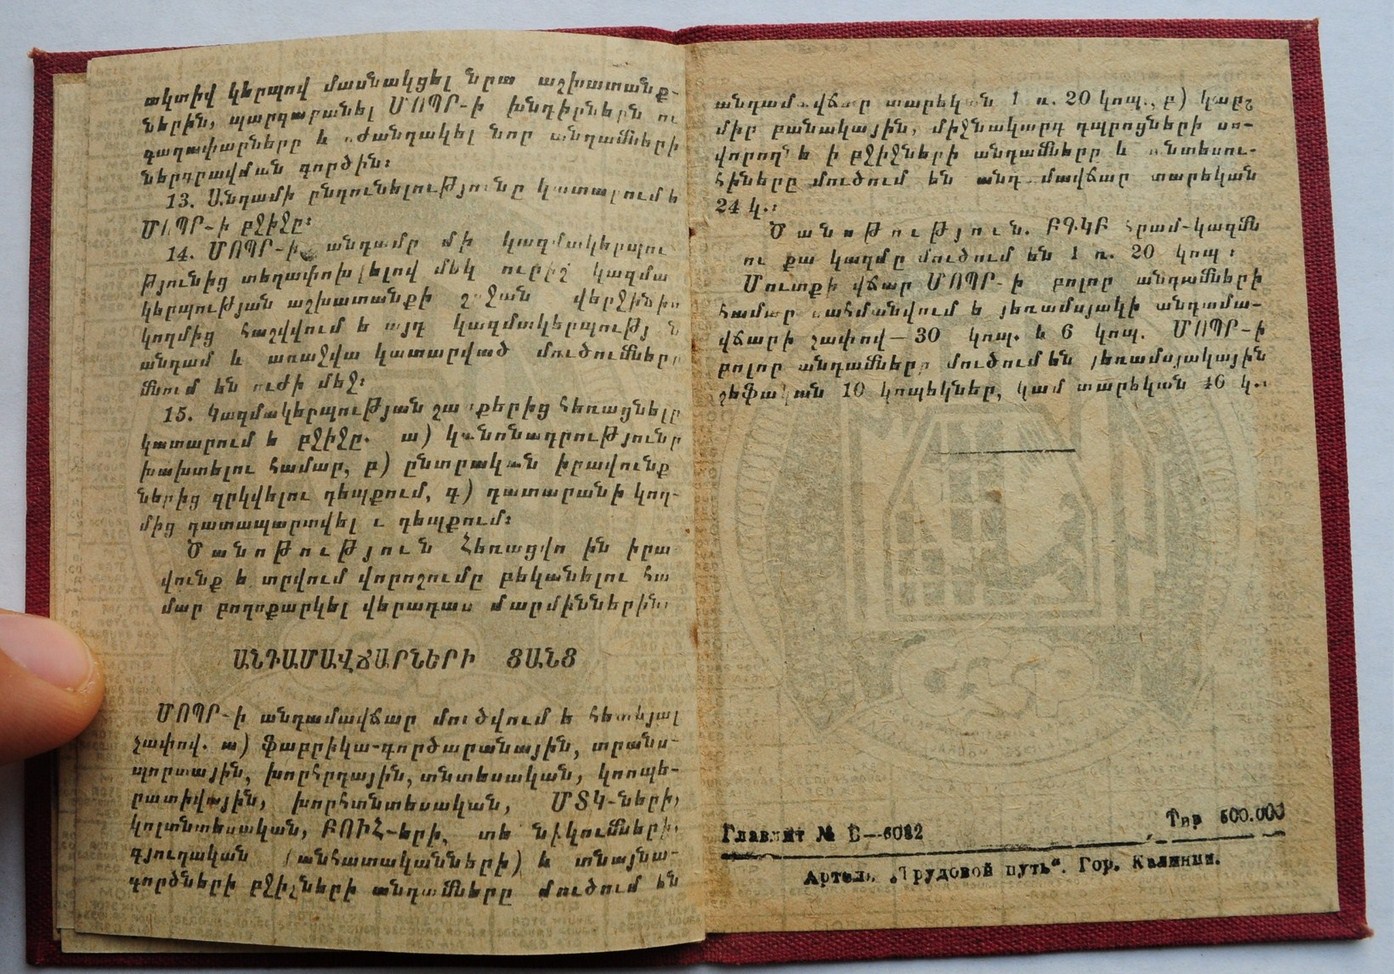 ակտիվ կերպով մասնակցել նրա աշխատանք-
ներին, պարզաբանել ՄՈՊՐ-ի խնդիրներն ու
գաղափարները և աժանդակել նոր անդամների
ներգրավման գործին։
13. Անդամի ընդունելությունը կատարում է
ՄՈՊՐ-ի բջիջը։
14. ՄՈՊՐ-ի անդամը մի կազմակերպու
թյունից տեղափոխվելով մեկ ուրիշ կազմա
կերպության աշխատանքի շրջան վերջինիս
կողմից հաշվվում է այդ կազմակերպության
անդամ և առաջվա կատարված մուծումները
մնում են ուժի մեջ։
15. Կազմակերպության շարքերից հեռացնելը
կատարում է բջիջը. ա) կանոնադրությունը
խախտելու համար, բ) ընտրական իրավունք
ներից զրկվելու դեպքում, գ) դատարանի կող-
մից դատապարտվելու դեպքում։
Ծանոթություն Հեռացվողին իրա
վունք է տրվում վորոշումը բեկանելու հա
մար բողոքարկել վերադաս մարմիններին։
ԱՆԴԱՄԱՎՃԱՐՆԵՐԻ ՑԱՆՑ
ՄՈՊՐ-ի անդամավճար մուծվում է հետևյալ
չափով. ա) ֆաբրիկա-գործարանային, տրանս-
պորտային, խորհրդային, տնտեսական, կոոպե-
րատիվային, խորհտնտեսական, ՄՏԿ-ների,
կոլտնտեսական, ԲՈՒՀ-երի, տեխնիկումների,
գյուղական (անհատականների) և տնայնա-
գործների բջիջների անդամները մուծում են
անդամավճար տարեկան 1 ռ. 20 կոպ., բ) կարշ
միր բանակային, միջնակարգ դպրոցների սո-
վորողների բջիջների անդամները և տնտեսու-
հիները մուծում են անդամավճար տարեկան
24 կ.։
Ծանոթություն. ԲԳԿԲ հրամ-կազմն
ու քա կազմը մուծում են 1 ռ. 20 կոպ։
Մուտքի վճար ՄՈՊՐ-ի բոլոր անդամների
համար սահմանվում է յեռամսյակի անդամա-
վճարի չափով—30 կոպ. և 6 կոպ. ՄՈՊՐ-ի
բոլոր անդամները մուծում են յեռամսյակային
շեֆական 10 կոպեկներ, կամ տարեկան 40 կ.։
Главлит № Б—6082 Тир 500.000
Артель „Трудовой путь“. Гор. Калинин.